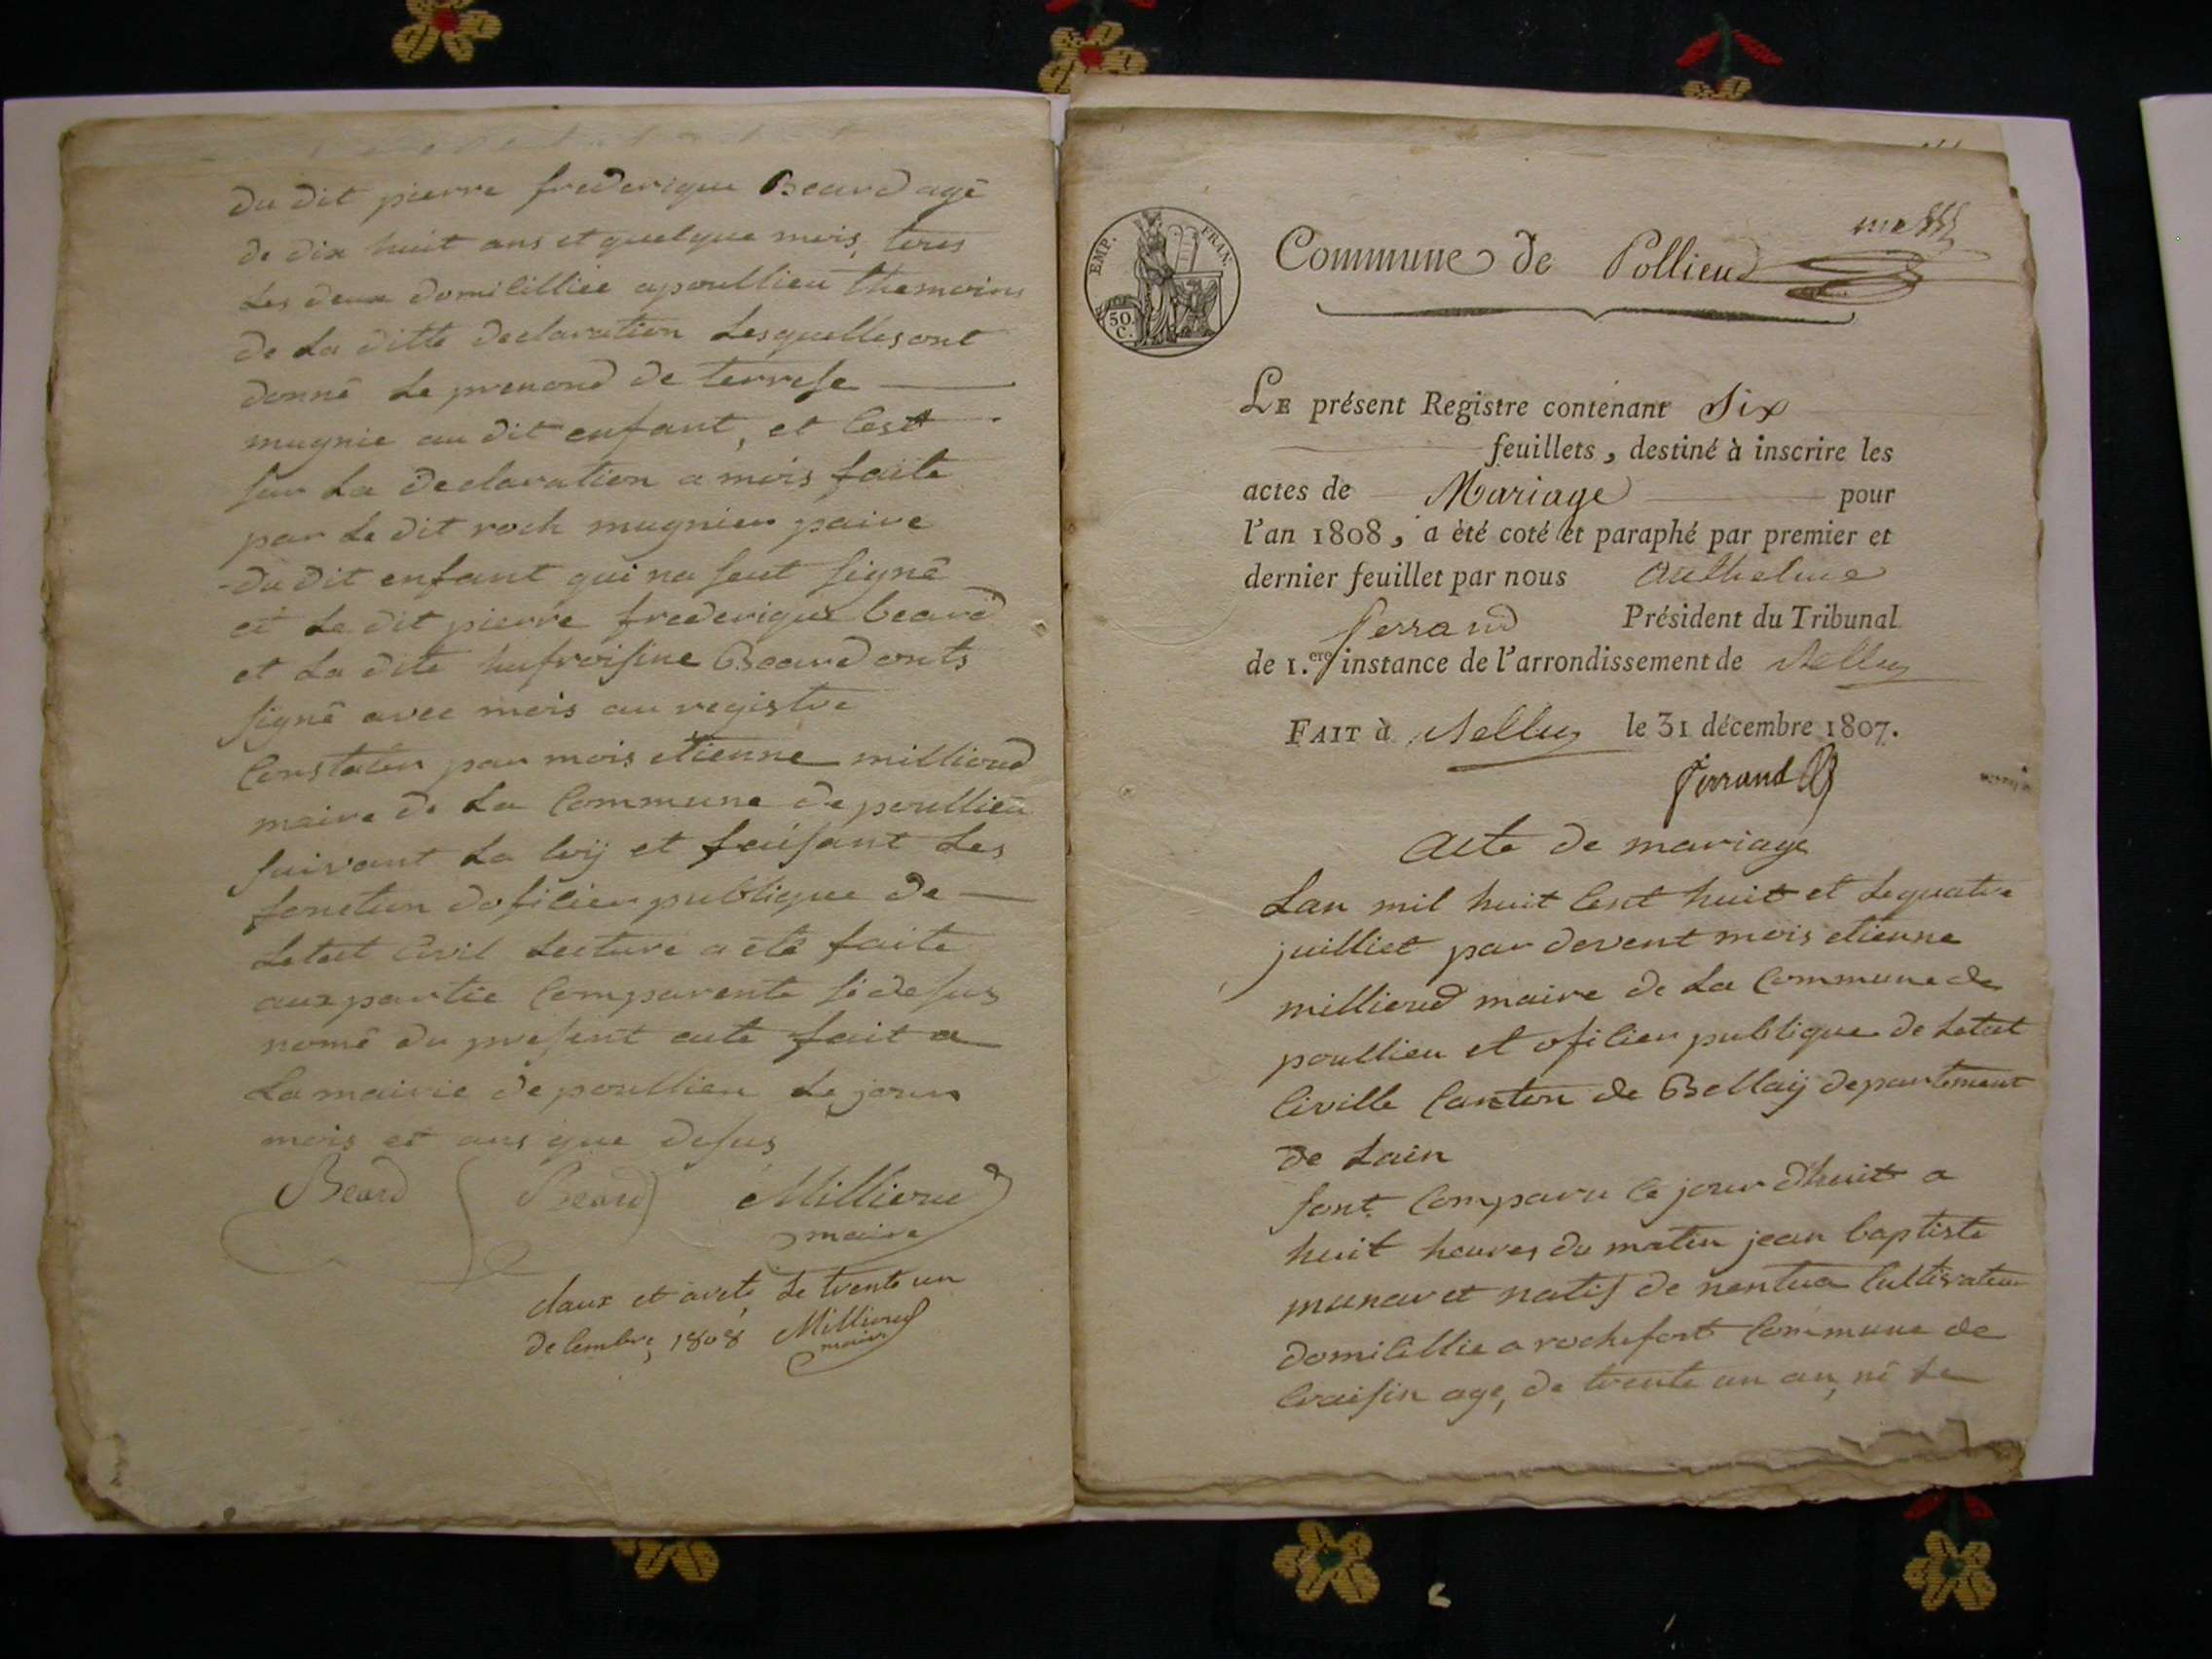 du dit pierre frederique Beard agé
de dix huit ans et quelque mois, tous
Les deux domicilliée a poullieu themoins
de La ditte declaration Lesquelles ont
donné Le prenond de terrese
mugnie au dit enfant, et Cest
sur La declaration a mois faite
par Le dit roch mugnier paire
du dit enfant qui na seut signé
et Le dit pierre frederique beard
et La dite hufroisine Beard onts
signé avec mois au registre
Constater par mois etienne milliond
maire de La Commune de poullieu
suivant La loÿ et faisant Les
fonction doficier publique de
Letat Civil Lecture a été faite
aux partie Comparente si desus
nomé du present acte fait a
La mairie de poullieu Le jour
mois et ans que desus
Beard Beard Milliond
maire
claux et areté Le trente un
decembre 1808 Milliond
maire
EMP. FRAN.
50 C.
Commune de Pollieu
LE présent Registre contenant Six
feuillets, destiné à inscrire les
actes de Mariage pour
l'an 1808, a été coté et paraphé par premier et
dernier feuillet par nous Anthelme
Ferrand Président du Tribunal
de 1.ere instance de l'arrondissement de Belley
FAIT à Belley le 31 décembre 1807.
Ferrand
acte de mariage
Lan mil huit Cent huit et Le quatre
juilliet par devent mois etienne
milliond maire de La Commune de
poullieu et oficier publique de Letat
Civille Canton de Bellaÿ departement
de Lain
sont Comparu Ce jour dhuit a
huit heures du matin jean baptiste
munaret natif de nentua Cultivateur
domicillie a rochefort Commune de
Craisin age, de trente un an, né Le